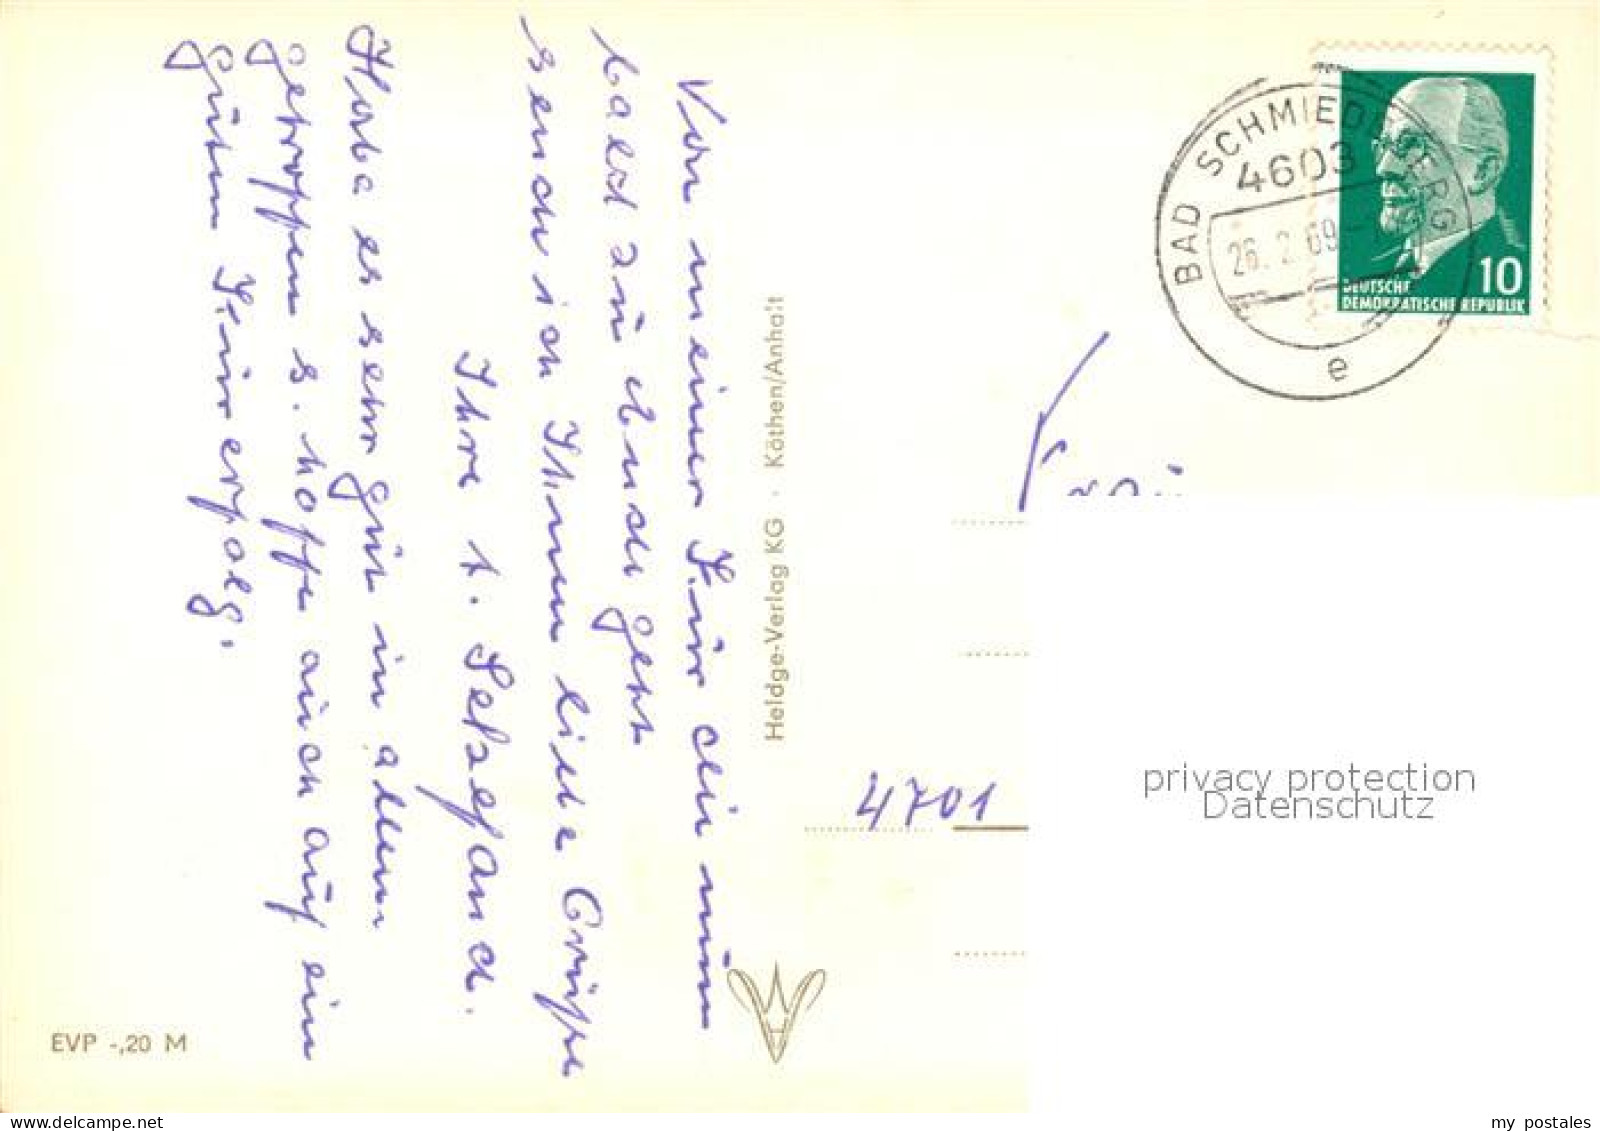 Von meiner Kur die nun
bald zu Ende geht
sende ich Ihnen liebe Grüße
Ihre
Habe es sehr gut in allem
getroffen u. hoffe auch auf ein
guten Kurerfolg.
Heldge-Verlag KG · Köthen/Anhalt
EVP -,20 M
BAD SCHMIEDEBERG
4603
26.2.69
e
10
DEUTSCHE
DEMOKRATISCHE REPUBLIK
Frau
4701
privacy protection
Datenschutz
www.delcampe.net
my_postales